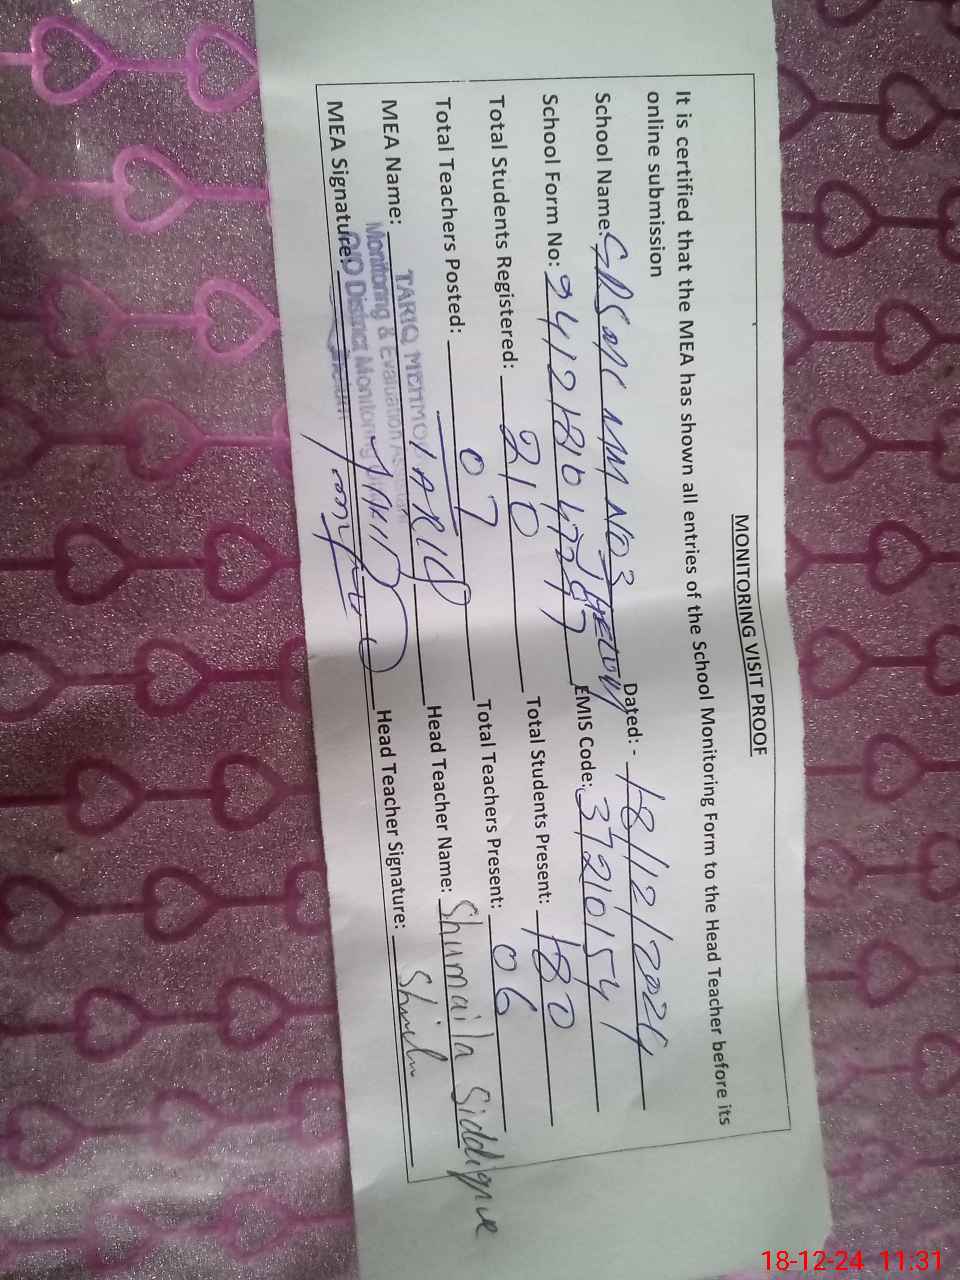 MONITORING VISIT PROOF
It is certified that the MEA has shown all entries of the School Monitoring Form to the Head Teacher before its
online submission
Dated: - 18/12/2024
School Name: No 3
School Form No: EMIS Code: 37210154
Total Students Registered: 210 Total Students Present: 180
Total Teachers Posted: 07 Total Teachers Present: 06
MEA Name: TARIQ Head Teacher Name: Shumaila Siddique
MEA Signature: Head Teacher Signature:
TARIQ MEHMOOD
Monitoring & Evaluation
O/O District Monitoring
18-12-24 11:31